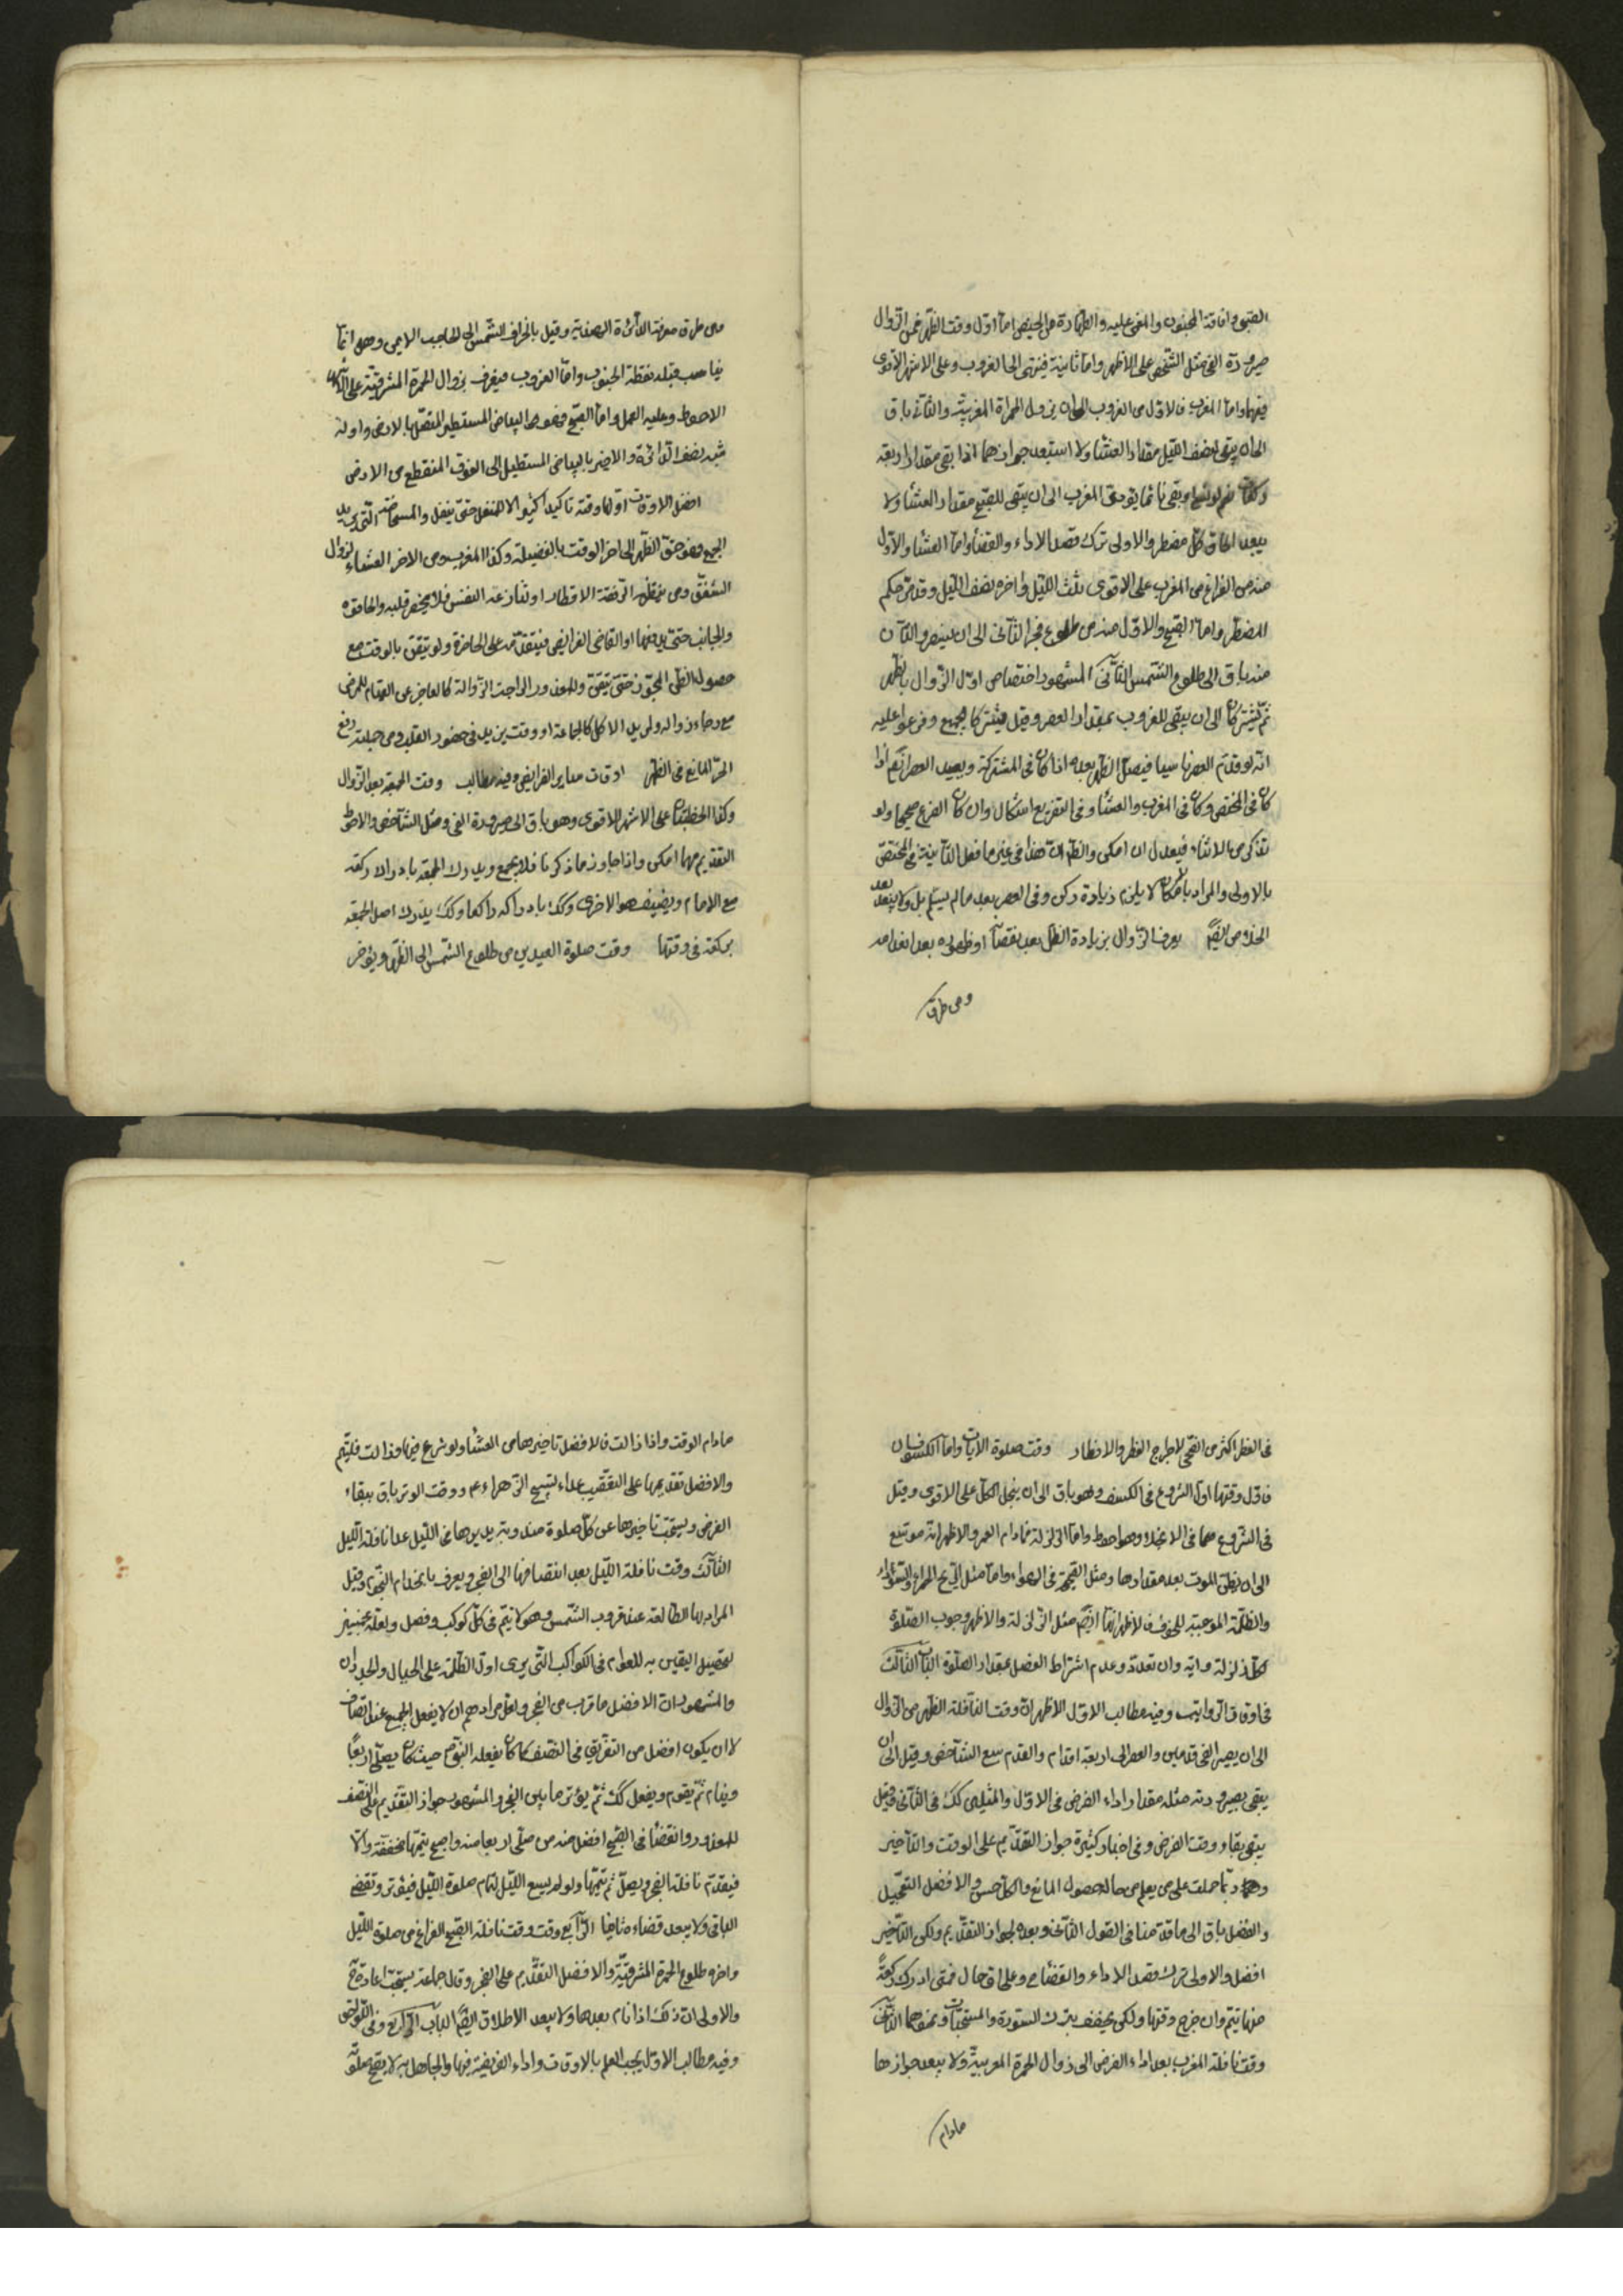 الصبى وافاقة المجنون والمغمى عليه والطهارة من الحيض اما اول وقت الظهر فمن الزوال
صيرورة الفى مثل الشخص على الاظهر واما ثانية فينتهى الى الغروب وعلى الاشهر الاقوى
فيهما واما المغرب فالاول من الغروب الى ان يزول الحمرة المغربية والثانى باق
الى ان يبقى لنصف الليل مقدار العشا ولا استبعد جوازهما اذا بقى مقدار اربعة
ركعات نعم لو نسى او بقى نائما يؤدى المغرب الى ان يبقى للصبح مقدار العشا ولا
يبعد الحاق كل مضطر والاولى ترك قصد الاداء والقضا واما العشا والاول
منه من الفراغ من المغرب على الاقوى ثلث الليل واخره نصف الليل وقد مر حكم
المضطر واما الصبح والاول منه من طلوع فجر الثانى الى ان يسفر والثانى
منه باق الى طلوع الشمس الثانى المشهور اختصاص اول الزوال بالظهر
ثم يشتركان الى ان يبقى للغروب بمقدار العصر وقيل يشتركا الجميع وفرعوا عليه
انه لو قدم العصر ناسيا فيصلى الظهر بعده اذا كان فى المشتركة ويعيد العصر اذا
كان فى المختص وكان فى المغرب والعشا وفى التفريع اشكال وان كان الفرع صحيحا ولو
تذكر من الاثناء فيعدل ان امكن والظاهر ان هذا فى غير ما فعل الثانية فى المختص
بالاولى والمراد بالامكان لا يلزم زيادة ركن وفى العصر بعد ما لم يسلم بل ولا يبعد
يعرف الزوال بزيادة الظل بعد نقصانه او ظهوره بعد انعدامه
ومن طرق
من طرق معرفة الدائرة الهندية وقيل بانحراف الشمس الى الحاجب الايمن وهو انما
يناسب قبلة نقطة الجنوب واما الغروب فيعرف بزوال الحمرة المشرقية على
الاحوط وعليه العمل واما الصبح فهو البياض المستطير المتصل بالارض واوله
والاخير بالبياض المستطيل الى الفوق المنقطع من الارض
افضل الاوقات اولها وقته تاكيدا كثيرا الا للمتنفل حتى يتنفل والمستحاضة التى تريد
الجمع فهو حق الظهر الى اخر الوقت بالفضيلة وكذا المغرب ومن الاخر العشاء لزوال
الشفق ومن ينتظر الرفقة الافطار او تنازعه النفس فلا يحضر قلبه والحاقن
حتى يدفعها او القاضى الفرايض فيتقدمه على الحاضرة ولو تيقن بالوقت مع
حصول الظن المجوز حتى تيقن وللعذور الراجية الزوالة كالعاجز عن القيام للمرض
مع رجاء زواله ولمريد الاكل كالجماعة او وقت يزيد فى حضور القلب ومن جملته رفع
الحر المانع فى الظهر اوقات ساير الفرايض وفيه مطالب وقت الجمعة بعد الزوال
وكذا الخطبتان على الاشهر الاقوى وهو باق الى صيرورة الفى ومثل الشاخص والاحوط
التقديم مهما امكن واذا جاوز ما ذكرنا فلا يجمع ويدرك الجمعة بادراك ركعة
مع الامام ويضيف هو الاخرى وكك بادراكه راكعا وكك يدرك اصل الجمعة
بركعة فى وقتها وقت صلوة العيدين من طلوع الشمس الى الظهر ويؤخر
فى الفطر اكثر من الضحى لاخراج الفطر والافطار وقت صلوة الايات واما الكسوفان
فاول وقتها اول الشروع فى الكسف وهو باق الى ان ينجلى الكل على الاقوى وقيل
فى الشروع مما فى الانجلاء وهو احوط واما الزلزلة فمادام العمر والاظهر انه موسع
الى ان يظن الموت بعد مقدارها ومثل الصيحة فى الهواء واما مثل الريح الحمراء والسوداء
والظلمة الموجبة للخوف فالاظهر انها ايضا مثل الزلزلة والاظهر وجوب الصلوة
لكل زلزلة واية وان تعدد وعدم اشتراط الفصل بمقدار الصلوة الباب الثالث
فى اوقات الرواتب وفيه مطالب الاول الاظهر ان وقت النافلة الظهر من الزوال
الى ان يصير الفى قدمين والعصر الى اربعة اقدام والقدم سبع الشاخص وقيل الى ان
يبقى بصيرورته مثله مقدار اداء الفرض فى الاول والمثلين كك فى الثانى وقيل
يبقى بقاء وقت الفرض وفى اخبار كثيرة جواز التقديم على الوقت والتاخير
وربما حملت على من يعلم من حاله حصول المانع والكل حسن والافضل التعجيل
والفضل باق الى ما قدمنا فى القول الثانى وبعده لجواز التقديم ولكن التاخير
افضل والاولى ترك قصد الاداء والقضا وعلى اى حال فمتى ادرك ركعة
منها تيتم وان خرج وقتها ولكن يخفف بترك السورة والمستحبات ونحوهما الثانى
وقت نافلة المغرب بعد اداء الفرض الى زوال الحمرة المغربية ولا يبعد جوازها
مادام
مادام الوقت واذا زالت فالافضل تاخيرها من العشا ولو شرع فيها وزالت فليتم
والافضل تقديمها على التعقيب عداء تسبيح الزهراء ع ووقت الوتر باق ببقاء
الفرض ويستحب تاخيرها عن كل صلوة عدا نافلة الليل
الثالث وقت نافلة الليل بعد انتصافها الى الفجر ويعرف بانحدار النجوم وقيل
المراد بها الطالعة عند غروب الشمس وهو لا يتم فى كل كوكب وفصل
لتحصيل اليقين به للعوام فى الكواكب التى يرى اول الظلمة على الجبال والجدران
والمشهور ان الافضل ما قرب من الفجر ولعل مرادهم ان لا يفعل الجميع عند انتصاف
لا ان يكون افضل من التفريق فى النصف كما كان يفعله النبى ص حيث كان يصلى اربعا
وينام ثم يقوم ويفعل كك ثم يؤتر ما بين الفجر والمشهور جواز التقديم على النصف
للعذور والقضا فى الصبح افضل منه من صلى اربعا منه واصبح يتمها مخففة والا
فيقدم نافلة الفجر ويصلى ثم يتمها ولو لم يسع الليل لتمام صلوة الليل فيؤتر وتقضى
الباقى ولا يبعد قضاء الرابع وقت نافلة الصبح الفراغ من صلوة الليل
واخره طلوع الحمرة المشرقية والافضل التقدم على الفجر وقال جماعة يستحب اعادته
والاولى ان ذلك اذا نام بعدها ولا يبعد الاطلاق ايضا الباب الرابع وفى اللواحق
وفيه مطالب الاول يجب العلم بالاوقات واداء الفريضة فيها والجاهل به لا يصح صلوته